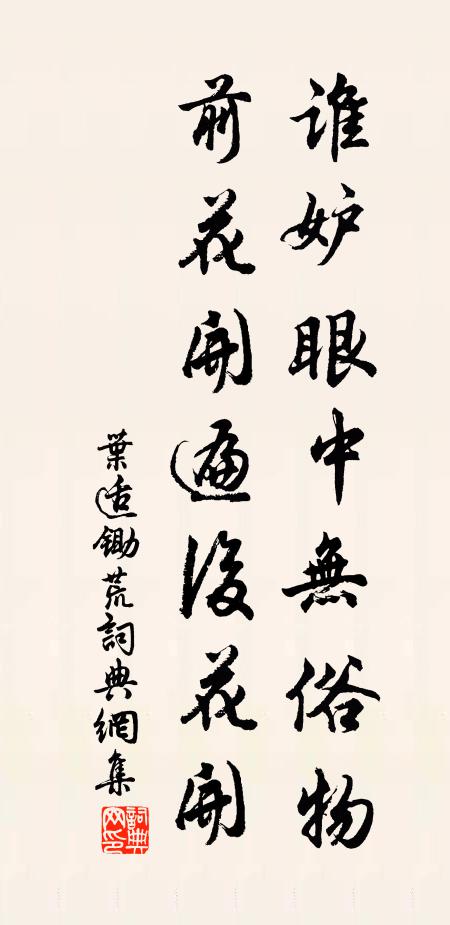 誰妒眼中無俗物
前花開遍後花開
葉适鋤荒詞典網集
詞典網印